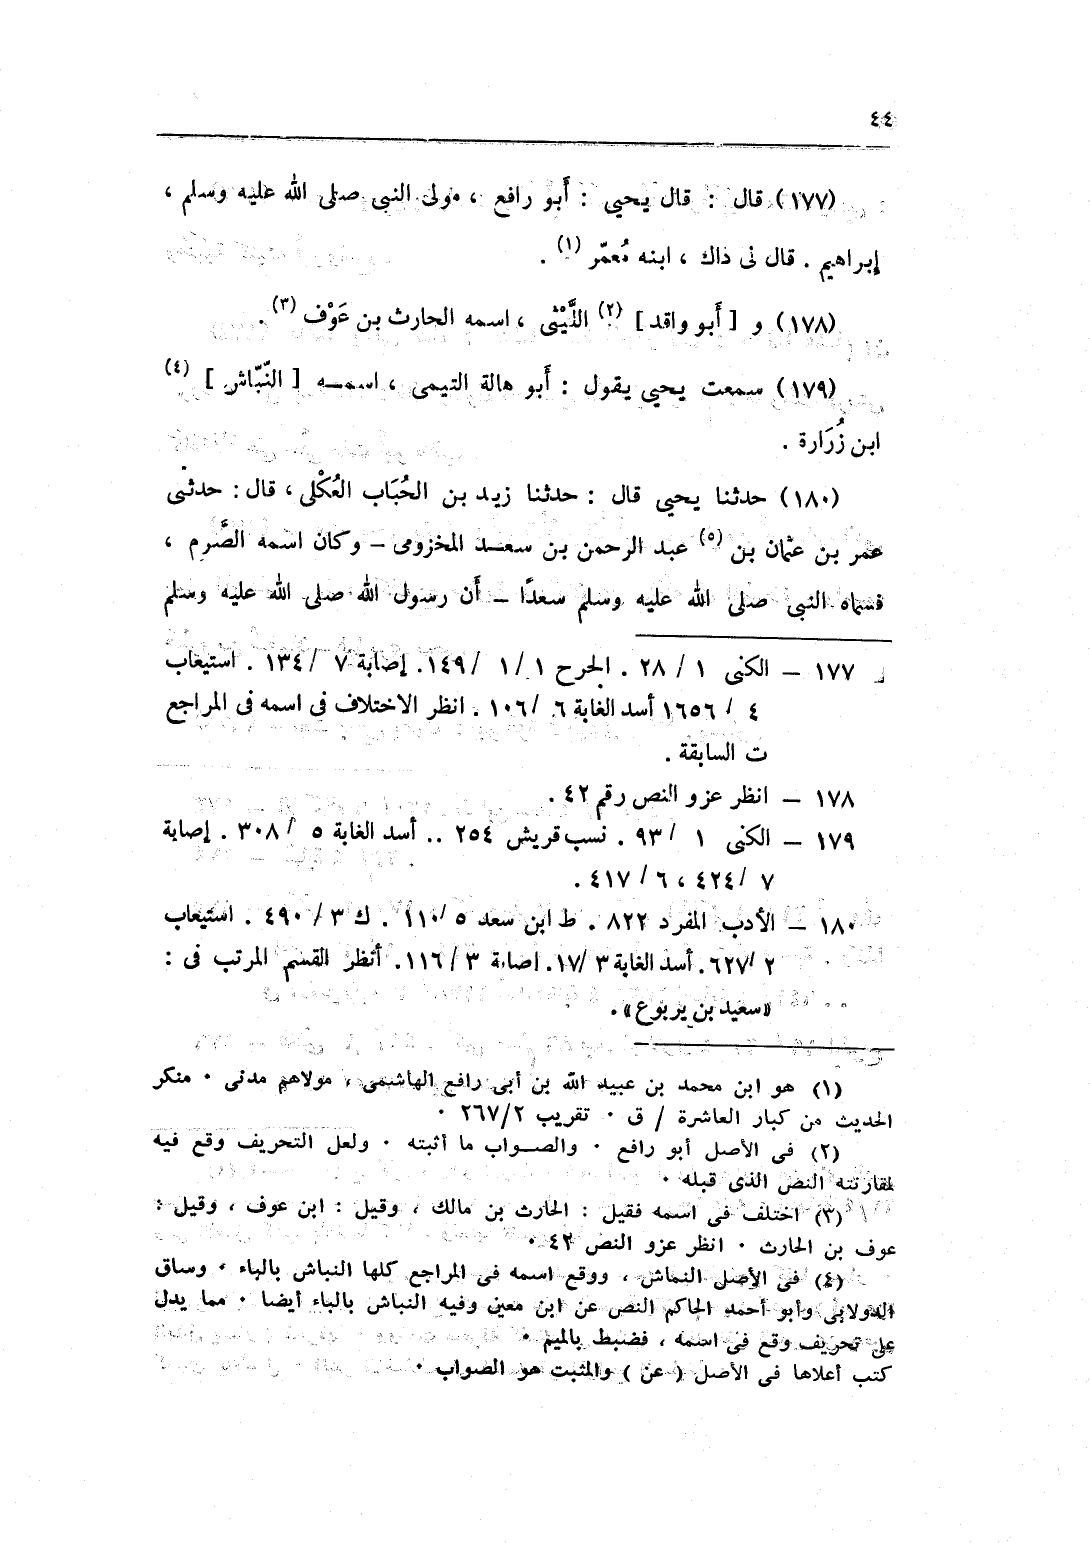 ٤٤
(١٧٧) قال : قال يحيى : أَبو رافع ، مولى النبى صلى الله عليه وسلم ،
إبراهيم . قال لى ذاك ، ابنه مُعمّر (١) .
(١٧٨) و [ أَبو واقد ] (٢) اللَّيْثى ، اسمه الحارث بن عَوْف (٣) .
(١٧٩) سمعت يحيى يقول : أَبو هالة التيمى ، اسمــه [ النّبّاش ] (٤)
ابن زُرَارة .
(١٨٠) حدثنا يحيى قال : حدثنا زيد بن الحُبَاب العُكْلى ، قال : حدثنى
عمر بن عثمان بن (٥) عبد الرحمن بن سعــد المخزومى – وكان اسمه الصَّرم ،
فسماه النبى صلى الله عليه وسلم سعدًا – أَن رسول الله صلى الله عليه وسلم
١٧٧ – الكنى ١ / ٢٨ . الجرح ١ / ١ / ١٤٩. إصابة ٧ / ١٣٤ . استيعاب
٤ / ١٦٥٦ أسد الغابة ٦ / ١٠٦ . انظر الاختلاف فى اسمه فى المراجع
ت السابقة .
١٧٨ – انظر عزو النص رقم ٤٢ .
١٧٩ – الكنى ١ / ٩٣ . نسب قريش ٢٥٤ .. أسد الغابة ٥ / ٣٠٨ . إصابة
٧ / ٤٢٤ ، ٦ / ٤١٧ .
١٨٠ – الأدب المفرد ٨٢٢ . ط ابن سعد ٥ / ١١٠ . ك ٣ / ٤٩٠ . استيعاب
٢ / ٦٢٧. أسد الغابة ٣ / ١٧. اصابة ٣ / ١١٦. أنظر القسم المرتب فى :
«سعيد بن يربوع» .
(١) هو ابن محمد بن عبيد الله بن أبى رافع الهاشمى ، مولاهم مدنى ٠ منكر
الحديث من كبار العاشرة / ق ٠ تقريب ٢٦٧/٢ ٠
(٢) فى الأصل أبو رافع ٠ والصــواب ما أثبته ٠ ولعل التحريف وقع فيه
لمقارنته النص الذى قبله ٠
(٣) اختلف فى اسمه فقيل : الحارث بن مالك ، وقيل : ابن عوف ، وقيل :
عوف بن الحارث ٠ انظر عزو النص ٤٢ ٠
(٤) فى الأصل النماش ، ووقع اسمه فى المراجع كلها النباش بالباء ٠ وساق
الدولابى وأبو أحمد الحاكم النص عن ابن معين وفيه النباش بالباء أيضا ٠ مما يدل
على تحريف وقع فى اسمه ، فضبط بالميم ٠
كتب أعلاها فى الأصل ( عن ) والمثبت هو الصواب ٠